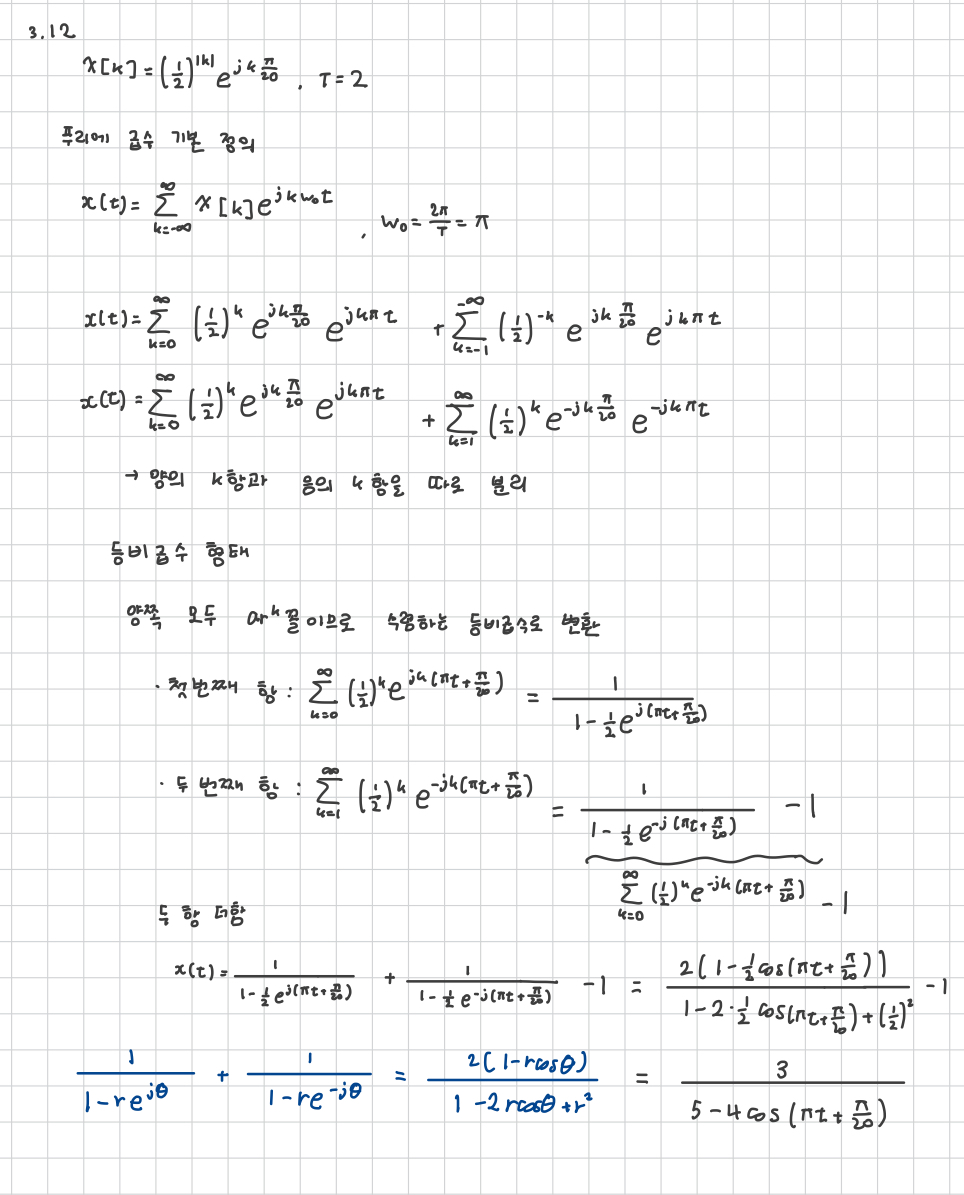 3.12
X[k] = (1/2)^|k| e^{jkπ/20} , T=2
푸리에 급수 기본 정의
x(t) = Σ_{k=-∞}^{∞} X[k] e^{jkw₀t} , w₀ = 2π/T = π
x(t) = Σ_{k=0}^{∞} (1/2)^k e^{jkπ/20} e^{jkπt} + Σ_{k=-1}^{-∞} (1/2)^{-k} e^{jkπ/20} e^{jkπt}
x(t) = Σ_{k=0}^{∞} (1/2)^k e^{jkπ/20} e^{jkπt} + Σ_{k=1}^{∞} (1/2)^k e^{-jkπ/20} e^{-jkπt}
→ 양의 k항과 음의 k항을 따로 분리
등비급수 형태
양쪽 모두 ar^k꼴이므로 수렴하는 등비급수로 변환
· 첫번째 항 : Σ_{k=0}^{∞} (1/2)^k e^{jk(πt+π/20)} = 1/(1 - 1/2 e^{j(πt+π/20)})
· 두 번째 항 : Σ_{k=1}^{∞} (1/2)^k e^{-jk(πt+π/20)} = 1/(1 - 1/2 e^{-j(πt+π/20)}) - 1
Σ_{k=0}^{∞} (1/2)^k e^{-jk(πt+π/20)} - 1
두 항 더함
x(t) = 1/(1 - 1/2 e^{j(πt+π/20)}) + 1/(1 - 1/2 e^{-j(πt+π/20)}) - 1 = 2(1 - 1/2 cos(πt+π/20))/(1 - 2·1/2 cos(πt+π/20) + (1/2)²) - 1
1/(1-re^{jθ}) + 1/(1-re^{-jθ}) = 2(1-rcosθ)/(1-2rcosθ+r²) = 3/(5-4cos(πt+π/20))